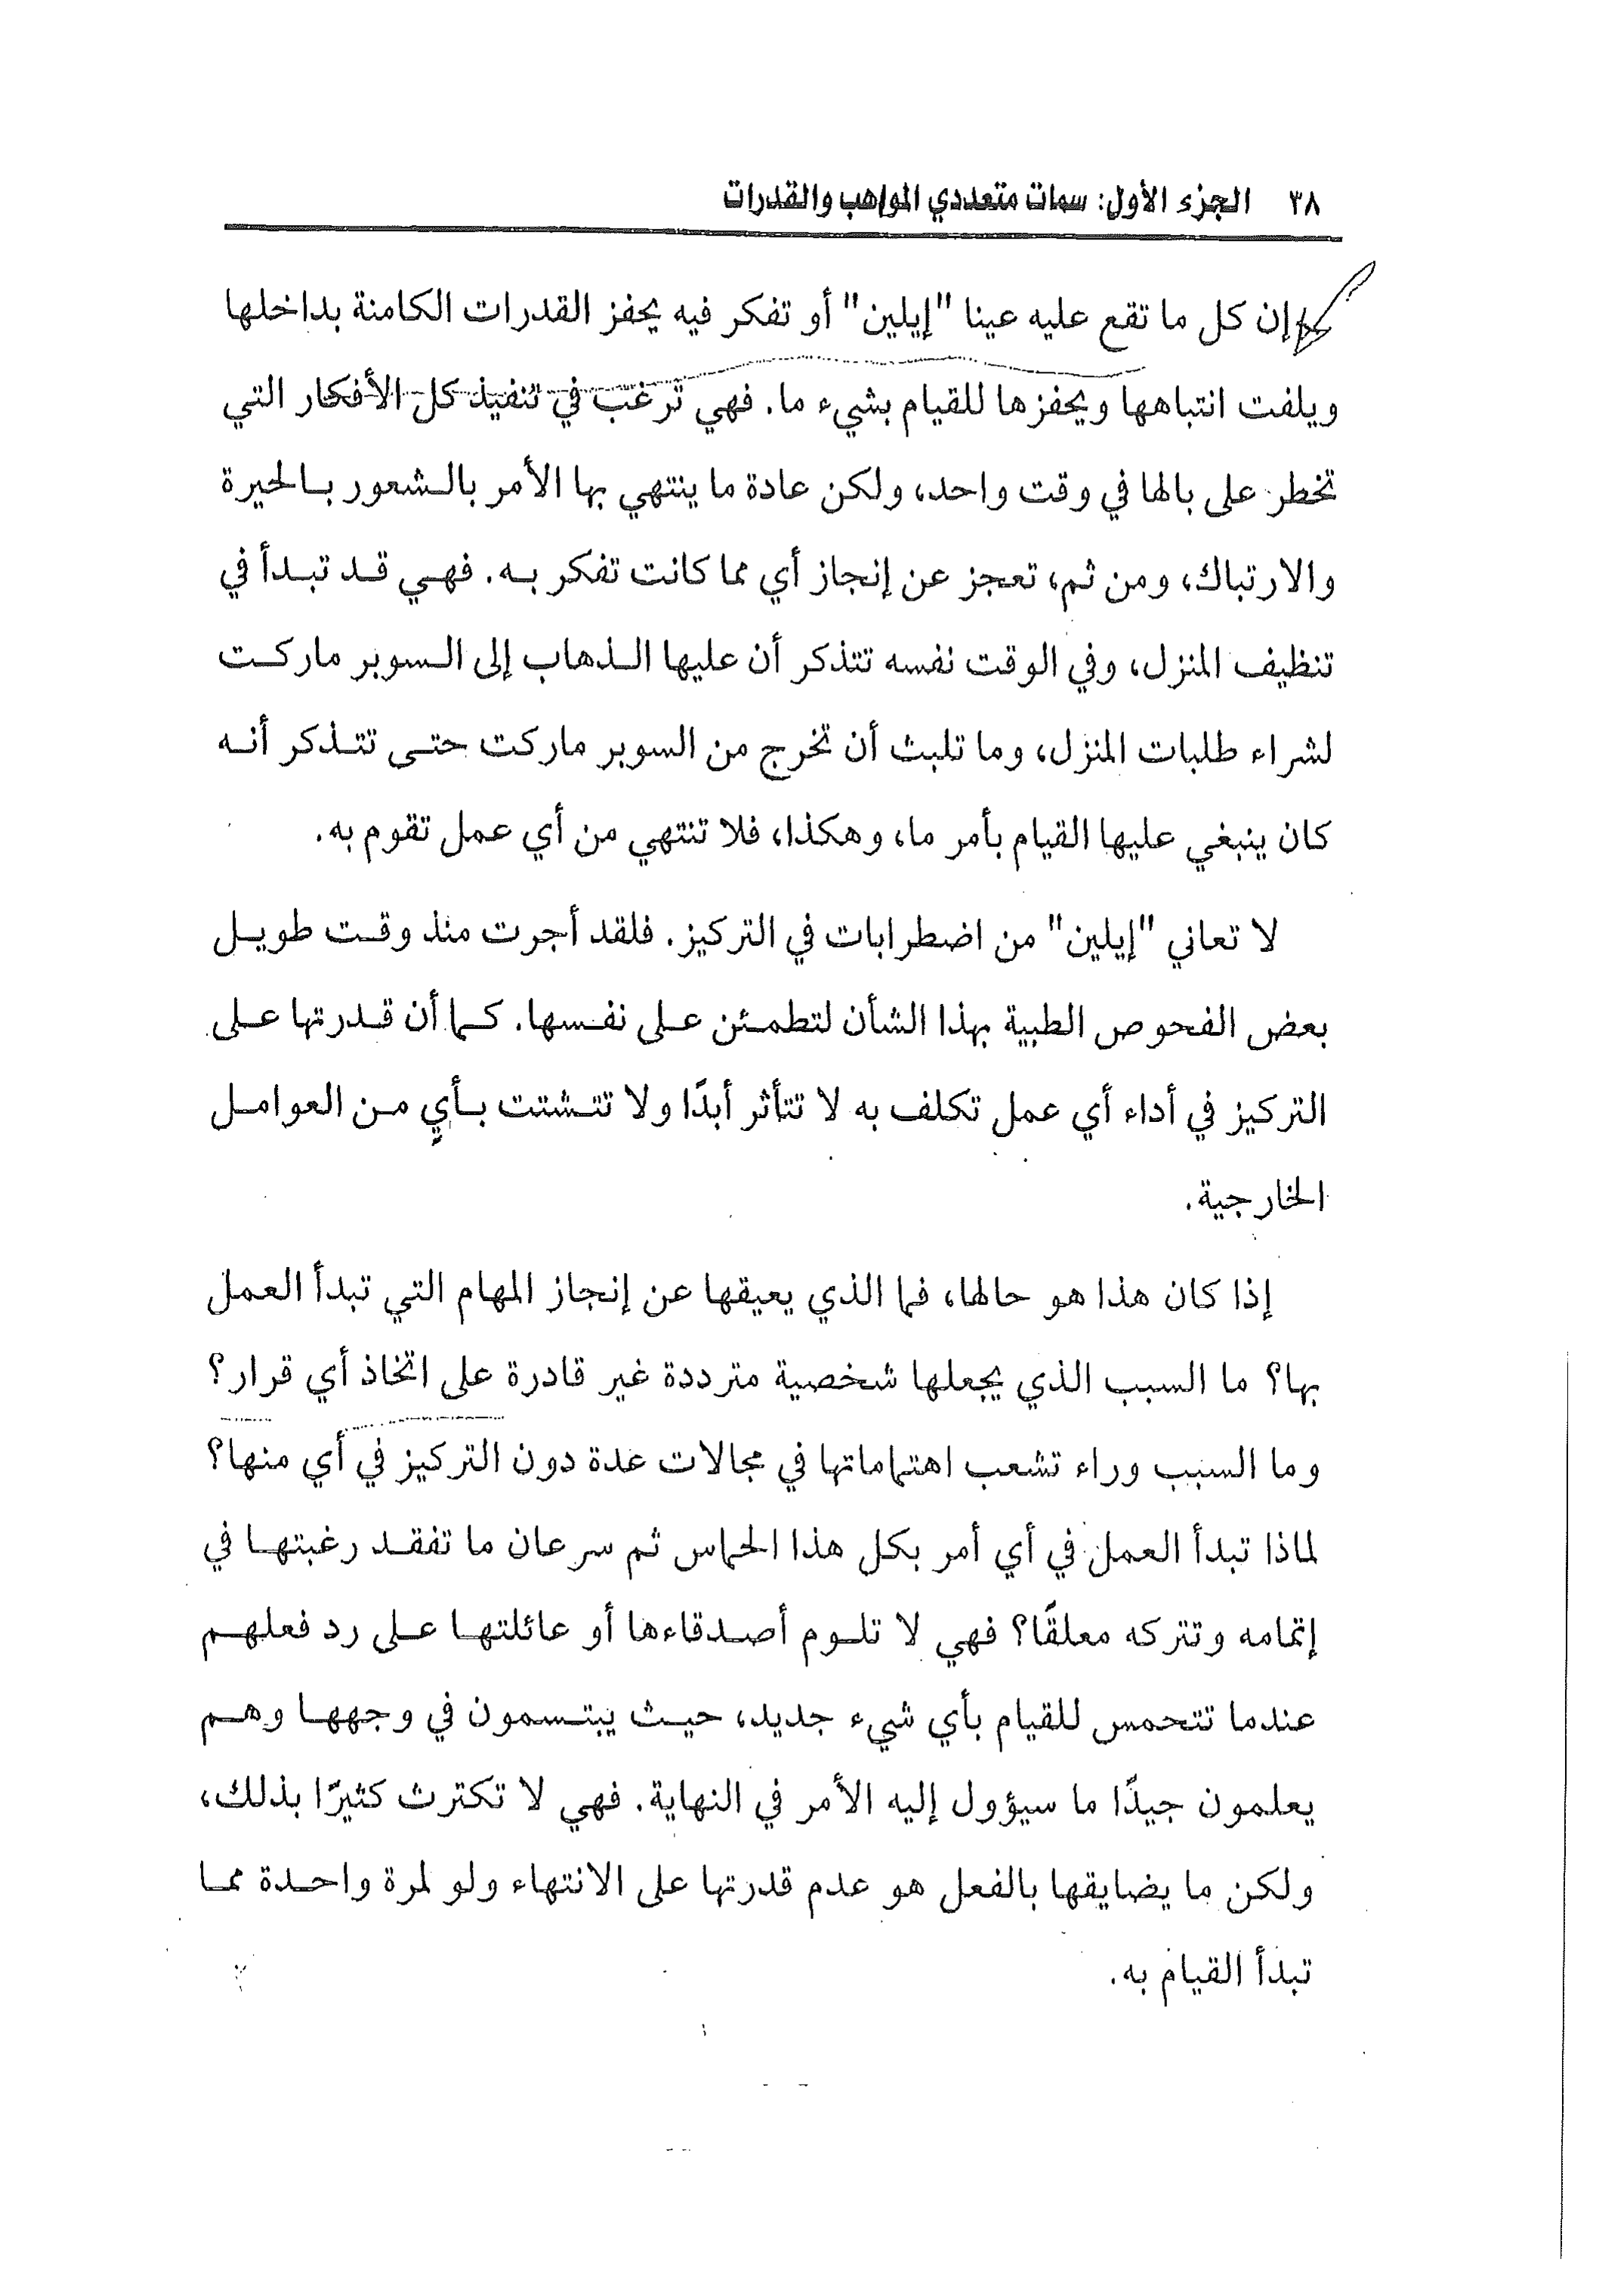 ٣٨ الجزء الأول: سمات متعددي المواهب والقدرات
إن كل ما تقع عليه عينا "إيلين" أو تفكر فيه يحفز القدرات الكامنة بداخلها
ويلفت انتباهها ويحفزها للقيام بشيء ما. فهي ترغب في تنفيذ كل الأفكار التي
تخطر على بالها في وقت واحد، ولكن عادة ما ينتهي بها الأمر بالشعور بالحيرة
والارتباك، ومن ثم، تعجز عن إنجاز أي مما كانت تفكر به. فهي قد تبدأ في
تنظيف المنزل، وفي الوقت نفسه تتذكر أن عليها الذهاب إلى السوبر ماركت
لشراء طلبات المنزل، وما تلبث أن تخرج من السوبر ماركت حتى تتذكر أنه
كان ينبغي عليها القيام بأمر ما، وهكذا، فلا تنتهي من أي عمل تقوم به.
لا تعاني "إيلين" من اضطرابات في التركيز. فلقد أجرت منذ وقت طويل
بعض الفحوص الطبية بهذا الشأن لتطمئن على نفسها. كما أن قدرتها على
التركيز في أداء أي عمل تكلف به لا تتأثر أبدًا ولا تتشتت بأيٍ من العوامل
الخارجية.
إذا كان هذا هو حالها، فما الذي يعيقها عن إنجاز المهام التي تبدأ العمل
بها؟ ما السبب الذي يجعلها شخصية مترددة غير قادرة على اتخاذ أي قرار؟
وما السبب وراء تشعب اهتماماتها في مجالات عدة دون التركيز في أي منها؟
لماذا تبدأ العمل في أي أمر بكل هذا الحماس ثم سرعان ما تفقد رغبتها في
إتمامه وتتركه معلقًا؟ فهي لا تلوم أصدقاءها أو عائلتها على رد فعلهم
عندما تتحمس للقيام بأي شيء جديد، حيث يبتسمون في وجهها وهم
يعلمون جيدًا ما سيؤول إليه الأمر في النهاية. فهي لا تكترث كثيرًا بذلك،
ولكن ما يضايقها بالفعل هو عدم قدرتها على الانتهاء ولو لمرة واحدة مما
تبدأ القيام به.